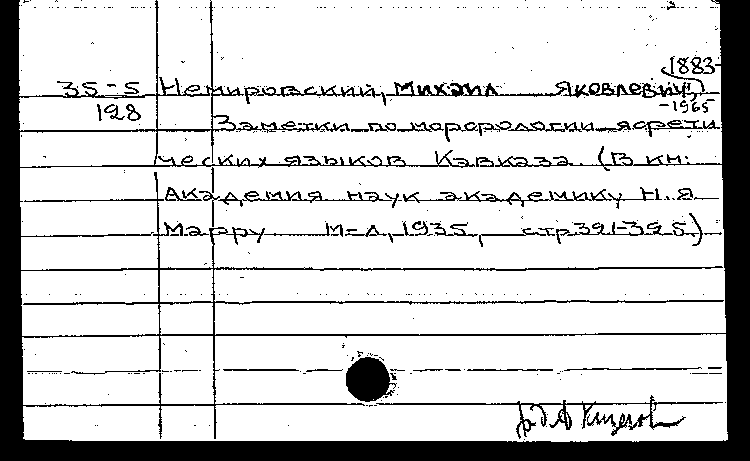 (1883-
35-5 Немировский, Михаил Яковлевич)
128 -1965
Заметки по морфологии яфети
ческих языков Кавказа. (В кн:
Академия наук академику Н.Я
Марру М-Л, 1935, стр391-395)